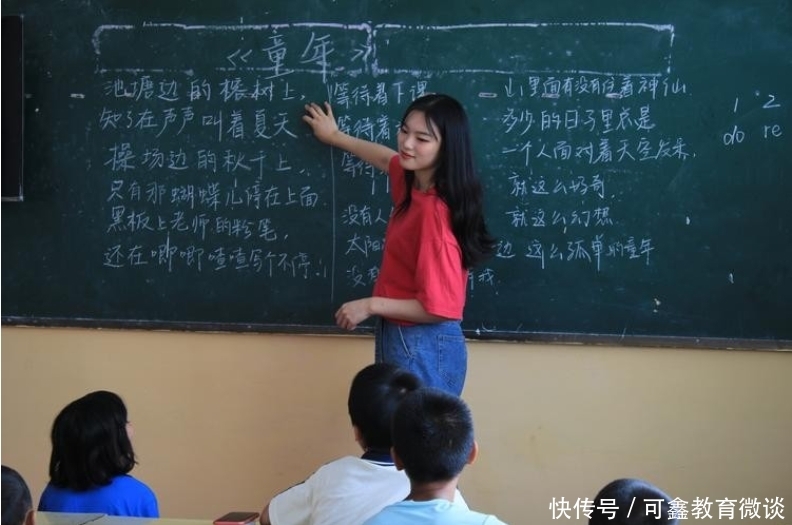 《童年》
池塘边的榕树上，
知了在声声叫着夏天
操场边的秋千上，
只有那蝴蝶儿停在上面
黑板上老师的粉笔，
还在唧唧喳喳写个不停
等待着下课
等待着
等待
没有人
太阳
没有
山里面有没有住着神仙
多少的日子里总是
一个人面对着天空发呆
就这么好奇
就这么幻想
边 这么孤单的童年
1 2
do re
快传号/可鑫教育微谈